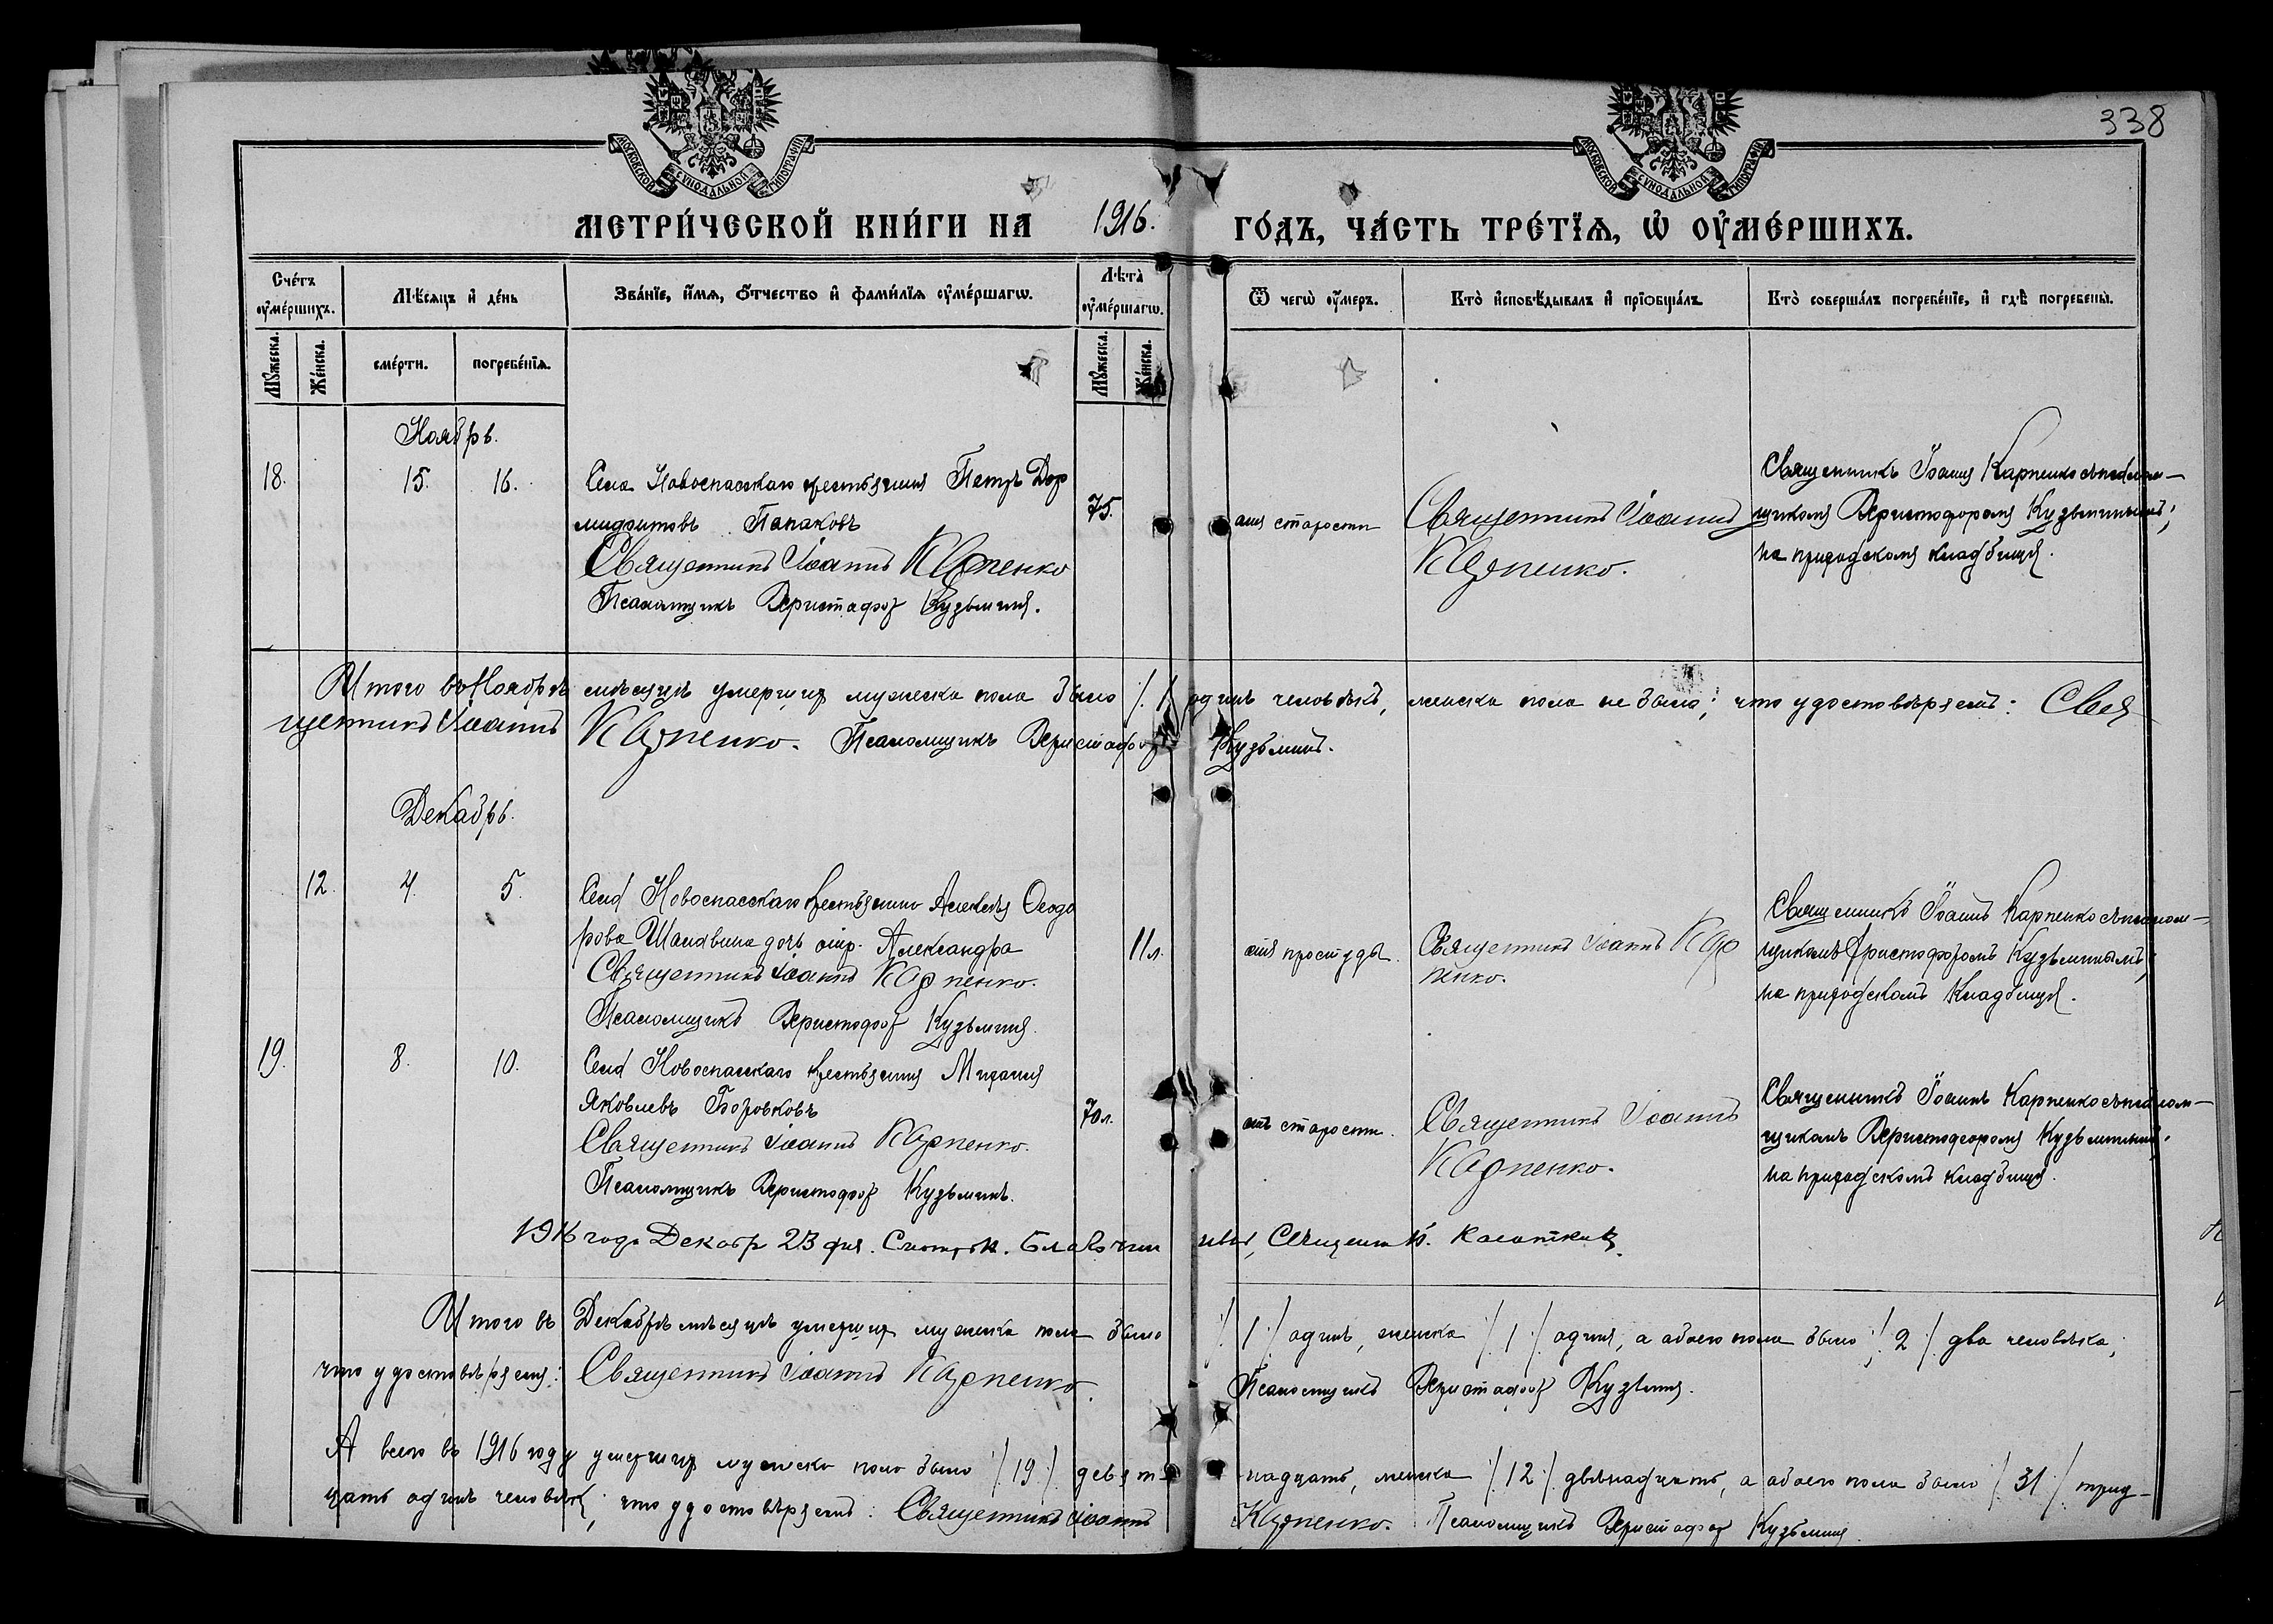 338
МОСКОВСКОЙ СѴНОДАЛЬНОЙ ТИПОГРАФІИ
МОСКОВСКОЙ СѴНОДАЛЬНОЙ ТИПОГРАФІИ
МЕТРИ́ЧЕСКОЙ КНИ́ГИ НА 1916. ГО́ДЪ, ЧА́СТЬ ТРЕ́ТЇѦ, Ѡ҆ ОУ҆МЕ́РШИХЪ.
Сче́тъ оу҆ме́ршихъ.
Мѣ́сяцъ и҆ де́нь
Зва́нїе, и҆́мѧ, ѻ҆́тчество и҆ фами́лїѧ оу҆ме́ршагѡ.
Лѣ́та̀ оу҆ме́ршагѡ.
Ѿ чегѡ̀ оу҆́меръ.
Кто̀ и҆сповѣ́дывалъ и҆ прїѻбща́лъ.
Кто̀ соверша́лъ погребе́нїе, и҆ гдѣ̀ погребены̀.
Мꙋ́жеска.
Же́нска.
сме́рти.
погребе́нїѧ.
Мꙋ́жеска.
Же́нска.
Ноябрь.
18. 15. 16.
Села Новоспасскаго крестьянинъ Петръ Дор
мидонтовъ Папаковъ
Священникъ Іоаннъ Карпенко
Псаломщикъ Христофоръ Кузьминъ.
75.
отъ старости
Священникъ Іоаннъ
Карпенко.
Священникъ Іоаннъ Карпенко съ псалом-
щикомъ Христофоромъ Кузьминымъ;
на приходскомъ кладбищѣ.
Итого въ Ноябрѣ мѣсяцѣ умершихъ мужеска пола было /:1:/ одинъ человѣкъ, женска пола не было; что удостовѣряемъ: Свя
щенникъ Іоаннъ Карпенко. Псаломщикъ Христофоръ Кузьминъ.
Декабрь.
12. 4. 5.
Села Новоспасскаго крестьянина Алексѣя Ѳеодо
рова Шалавина дочь отр. Александра
Священникъ Іоаннъ Карпенко.
Псаломщикъ Христофоръ Кузьминъ.
11 л.
отъ простуды.
Священникъ Іоаннъ Кар
пенко.
Священникъ Іоаннъ Карпенко съ псалом-
щикомъ Христофоромъ Кузьминымъ;
на приходскомъ кладбищѣ.
19. 8. 10.
Села Новоспасскаго крестьянинъ Михаилъ
Яковлевъ Боровковъ
Священникъ Іоаннъ Карпенко.
Псаломщикъ Христофоръ Кузьминъ.
70 л.
отъ старости.
Священникъ Іоаннъ
Карпенко.
Священникъ Іоаннъ Карпенко съ псалом-
щикомъ Христофоромъ Кузьминымъ;
на приходскомъ кладбищѣ.
1916 года Декабр 23 дня. Благочин ный, Священникъ
Итого въ Декабрѣ мѣсяцѣ умершихъ мужеска пола было /:1:/ одинъ, женска /:1:/ одна, а обоего пола было /:2:/ два человѣка;
что удостовѣряемъ: Священникъ Іоаннъ Карпенко. Псаломщикъ Христофоръ Кузьминъ.
А всего въ 1916 году умершихъ мужеска пола было /:19:/ девят-надцать, женска /:12:/ двѣнадцать, а обоего пола было /:31:/ трид-
цать одинъ человѣкъ; что удостовѣряемъ: Священникъ Іоаннъ Карпенко. Псаломщикъ Христофоръ Кузьминъ.